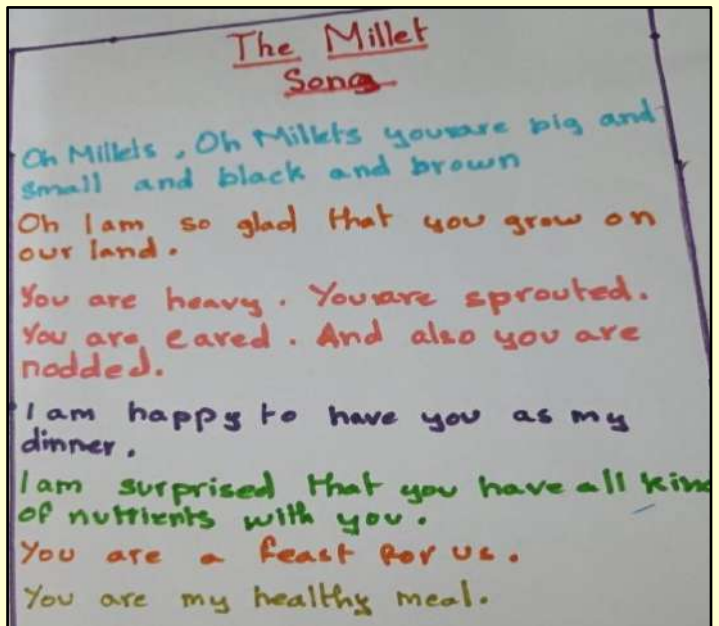 The Millet
Song
Oh Millets, Oh Millets you are big and
small and black and brown
Oh I am so glad that you grow on
our land.
You are heavy. You are sprouted.
You are eared. And also you are
nodded.
I am happy to have you as my
dinner.
I am surprised that you have all kind
of nutrients with you.
You are a feast for us.
You are my healthy meal.